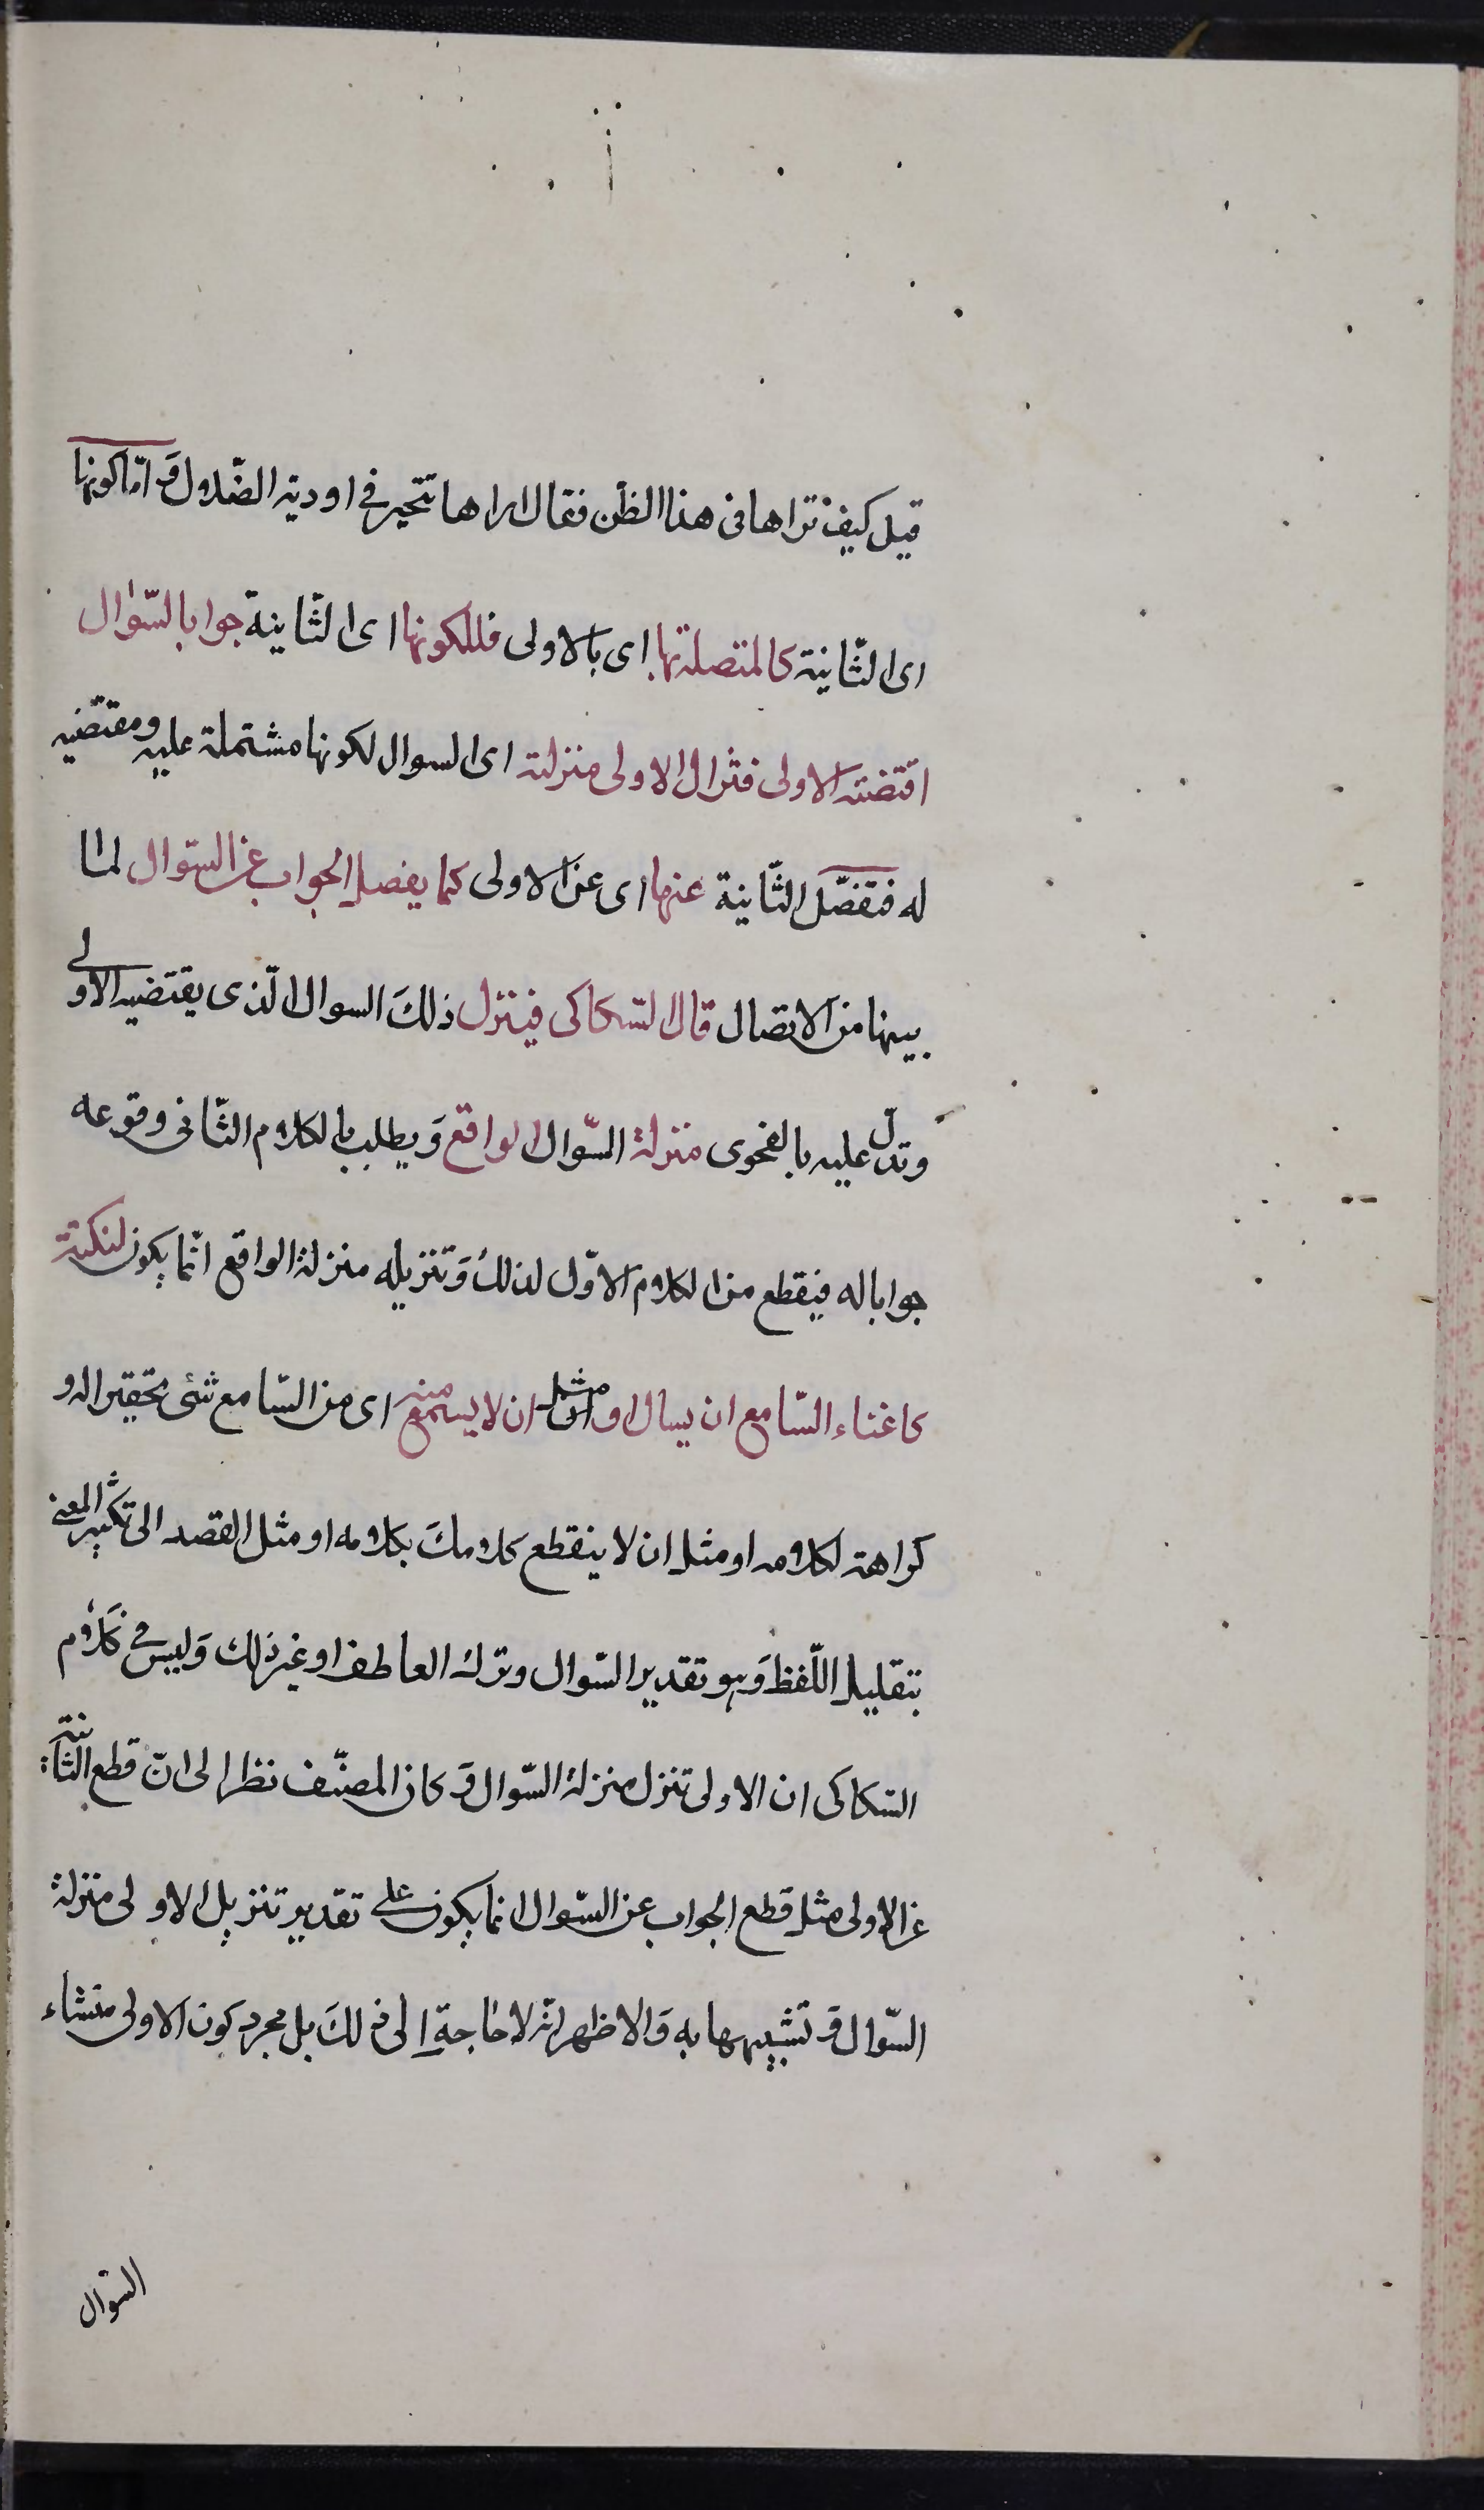 قيل كيف تراها فى هذا الظن فقال اراها تتحير فى اودية الضلال وَ امّا كونها
اى الثّانية كالمتصلة بها اى بالاولى فللكونها اى الثّانية جوابا لسّوال
اقتضته الاولى فتزال الاولى منزلته اى السوال لكونها مشتملة عليه ومقتضيه
له فتفصّل الثّانية عنها اى عن الاولى كما يفصل الجواب عن السّوال لما
بينهما من الاتصال قال السّكاكى فينزل ذلكَ السوال الّذى يقتضيه الاولى
وتدلّ عليه بالفحوى منزلة السّوال الواقع وَ يطلب بالكلام الثّانى وقوعه
جوابا له فيقطع من الكلام الاوّل لذلك وَ تنزيله منزلة الواقع انّما يكون لنكتة
كاغناء السّامع ان يسال او مثل ان لا يسمع منه اى من السّامع شئ تحقيرا له و
كراهة لكلامه او مثل ان لا ينقطع كلامكَ بكلامه او مثل القصد الى تكثير المعنى
بتقليل اللّفظ وَ هو تقدير السّوال وترك العاطف او غير ذلك وَ ليس فى كلام
السّكاكى ان الاولى تنزل منزلة السّوال وَ كان المصنّف نظر الى انّ قطع الثّانية
عن الاولى مثل قطع الجواب عن السّوال انما يكون على تقدير تنزيل الاولى منزلة
السّوال وَ تشبيهها به وَ الاظهر انّه لا حاجة اِلى ذلكَ بل مجرد كون الاولى منشاء
السّوال